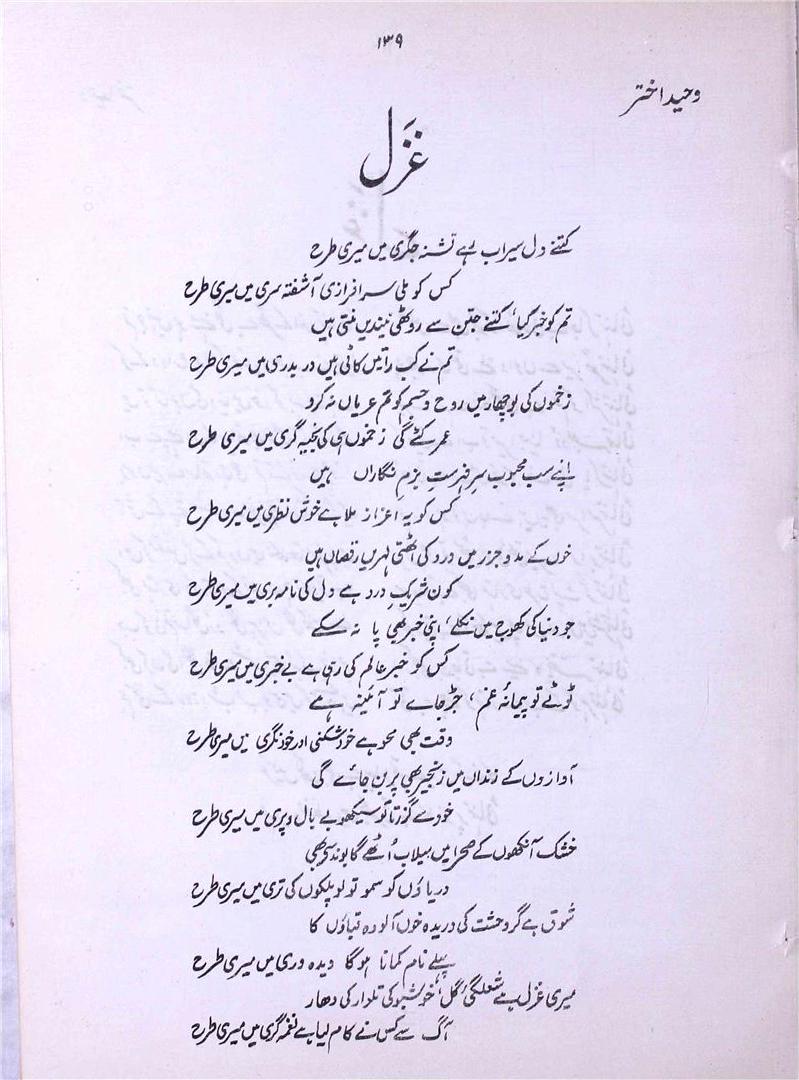 ۱۳۹
وحید اختر
غزل
کتنے دل سیراب ہے تشنہ جگری میں میری طرح
کس کو ملی سرافرازی آشفتہ سری میں میری طرح
تم کو خبر کیا، کتنے جتن سے روٹھی نیندیں منتی ہیں
تم نے کب راتیں کاٹی ہیں دربدری میں میری طرح
زخموں کی بوچھار میں روح و جسم کو تم عریاں نہ کرو
عمر کٹے گی زخموں ہی کی بخیہ گری میں میری طرح
اپنے سب محبوب سرِ فہرستِ بزمِ نگاراں ہیں
کس کو یہ اعزاز ملا ہے خوش نظری میں میری طرح
خوں کے مدوجزر میں درد کی اٹھتی لہریں رقصاں ہیں
کون شریکِ درد ہے دل کی نامہ بری میں میری طرح
جو دنیا کی کھوج میں نکلے، اپنی خبر بھی پا نہ سکے
کس کو خبر عالم کی رہی ہے بے خبری میں میری طرح
ٹوٹے تو پیمانۂ غم، جڑ جائے تو آئینہ ہے
وقت بھی محو ہے خود شکنی اور خود نگری میں میری طرح
آوازوں کے زنداں میں زنجیر بھی پر بن جائے گی
خود سے گزرنا تو سیکھو بے بال و پری میں میری طرح
خشک آنکھوں کے صحرا میں سیلاب اُٹھے گا بوند سے بھی
دریاؤں کو سمو تو لو پلکوں کی تری میں میری طرح
شوق ہے گر وحشت کی دریدہ خوں آلودہ قباؤں کا
پہلے نام کمانا ہوگا دیدہ وری میں میری طرح
میری غزل ہے شعلگیٔ گل، خوشبو کی تلوار کی دھار
آگ سے کس نے کام لیا ہے نغمہ گری میں میری طرح